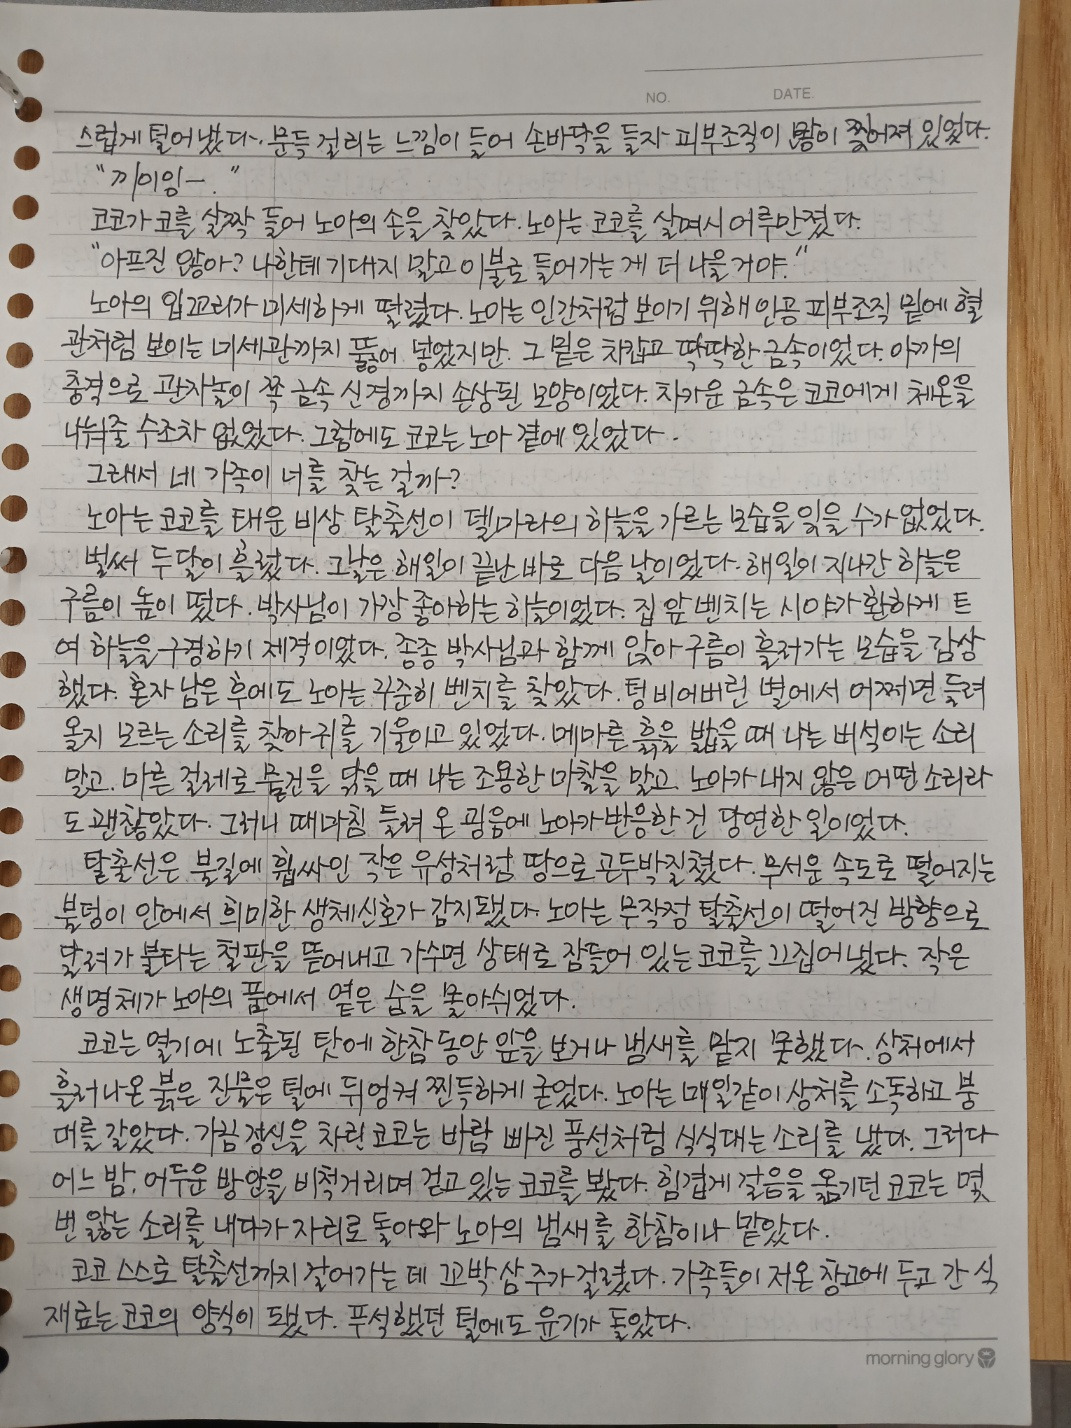 NO. DATE.
스럽게 털어냈다. 문득 걸리는 느낌이 들어 손바닥을 들자 피부조직이 많이 찢어져 있었다.
"끼이잉-."
코코가 코를 살짝 들어 노아의 손을 찾았다. 노아는 코코를 살며시 어루만졌다.
"아프진 않아? 나한테 기대지 말고 이불로 들어가는 게 더 나을거야."
노아의 입꼬리가 미세하게 떨렸다. 노아는 인간처럼 보이기 위해 인공 피부조직 밑에 혈
관처럼 보이는 미세관까지 뚫어 넣었지만. 그 밑은 차갑고 딱딱한 금속이었다. 아까의
충격으로 관자놀이 쪽 금속 신경까지 손상된 모양이었다. 차가운 금속은 코코에게 체온을
나눠줄 수조차 없었다. 그럼에도 코코는 노아 곁에 있었다.
그래서 네 가족이 너를 찾는 걸까?
노아는 코코를 태운 비상 탈출선이 텔마라의 하늘을 가르는 모습을 잊을 수가 없었다.
벌써 두달이 흘렀다. 그날은 해일이 끝난 바로 다음 날이었다. 해일이 지나간 하늘은
구름이 높이 떴다. 박사님이 가장 좋아하는 하늘이었다. 집 앞 벤치는 시야가 환하게 트
여 하늘을 구경하기 제격이었다. 종종 박사님과 함께 앉아 구름이 흘러가는 모습을 감상
했다. 혼자 남은 후에도 노아는 꾸준히 벤치를 찾았다. 텅 비어버린 별에서 어쩌면 들려
올지 모르는 소리를 찾아 귀를 기울이고 있었다. 메마른 흙을 밟을 때 나는 버석이는 소리
말고. 마른 걸레로 물건을 닦을 때 나는 조용한 마찰음 말고. 노아가 내지 않은 어떤 소리라
도 괜찮았다. 그러니 때마침 들려 온 굉음에 노아가 반응한 건 당연한 일이었다.
탈출선은 불길에 휩싸인 작은 유성처럼 땅으로 곤두박질쳤다. 무서운 속도로 떨어지는
불덩이 안에서 희미한 생체신호가 감지됐다. 노아는 무작정 탈출선이 떨어진 방향으로
달려가 불타는 철판을 뜯어내고 가수면 상태로 잠들어 있는 코코를 끄집어냈다. 작은
생명체가 노아의 품에서 옅은 숨을 몰아쉬었다.
코코는 열기에 노출된 탓에 한참동안 앞을 보거나 냄새를 맡지 못했다. 상처에서
흘러나온 붉은 진물은 털에 뒤엉켜 찐득하게 굳었다. 노아는 매일같이 상처를 소독하고 붕
대를 갈았다. 가끔 정신을 차린 코코는 바람 빠진 풍선처럼 식식대는 소리를 냈다. 그러다
어느 밤, 어두운 방안을 비척거리며 걷고 있는 코코를 봤다. 힘겹게 걸음을 옮기던 코코는 몇
번 앓는 소리를 내다가 자리로 돌아와 노아의 냄새를 한참이나 맡았다.
코코 스스로 탈출선까지 걸어가는 데 꼬박 삼 주가 걸렸다. 가족들이 저온 창고에 두고 간 식
재료는 코코의 양식이 됐다. 푸석했던 털에도 윤기가 돌았다.
morning glory